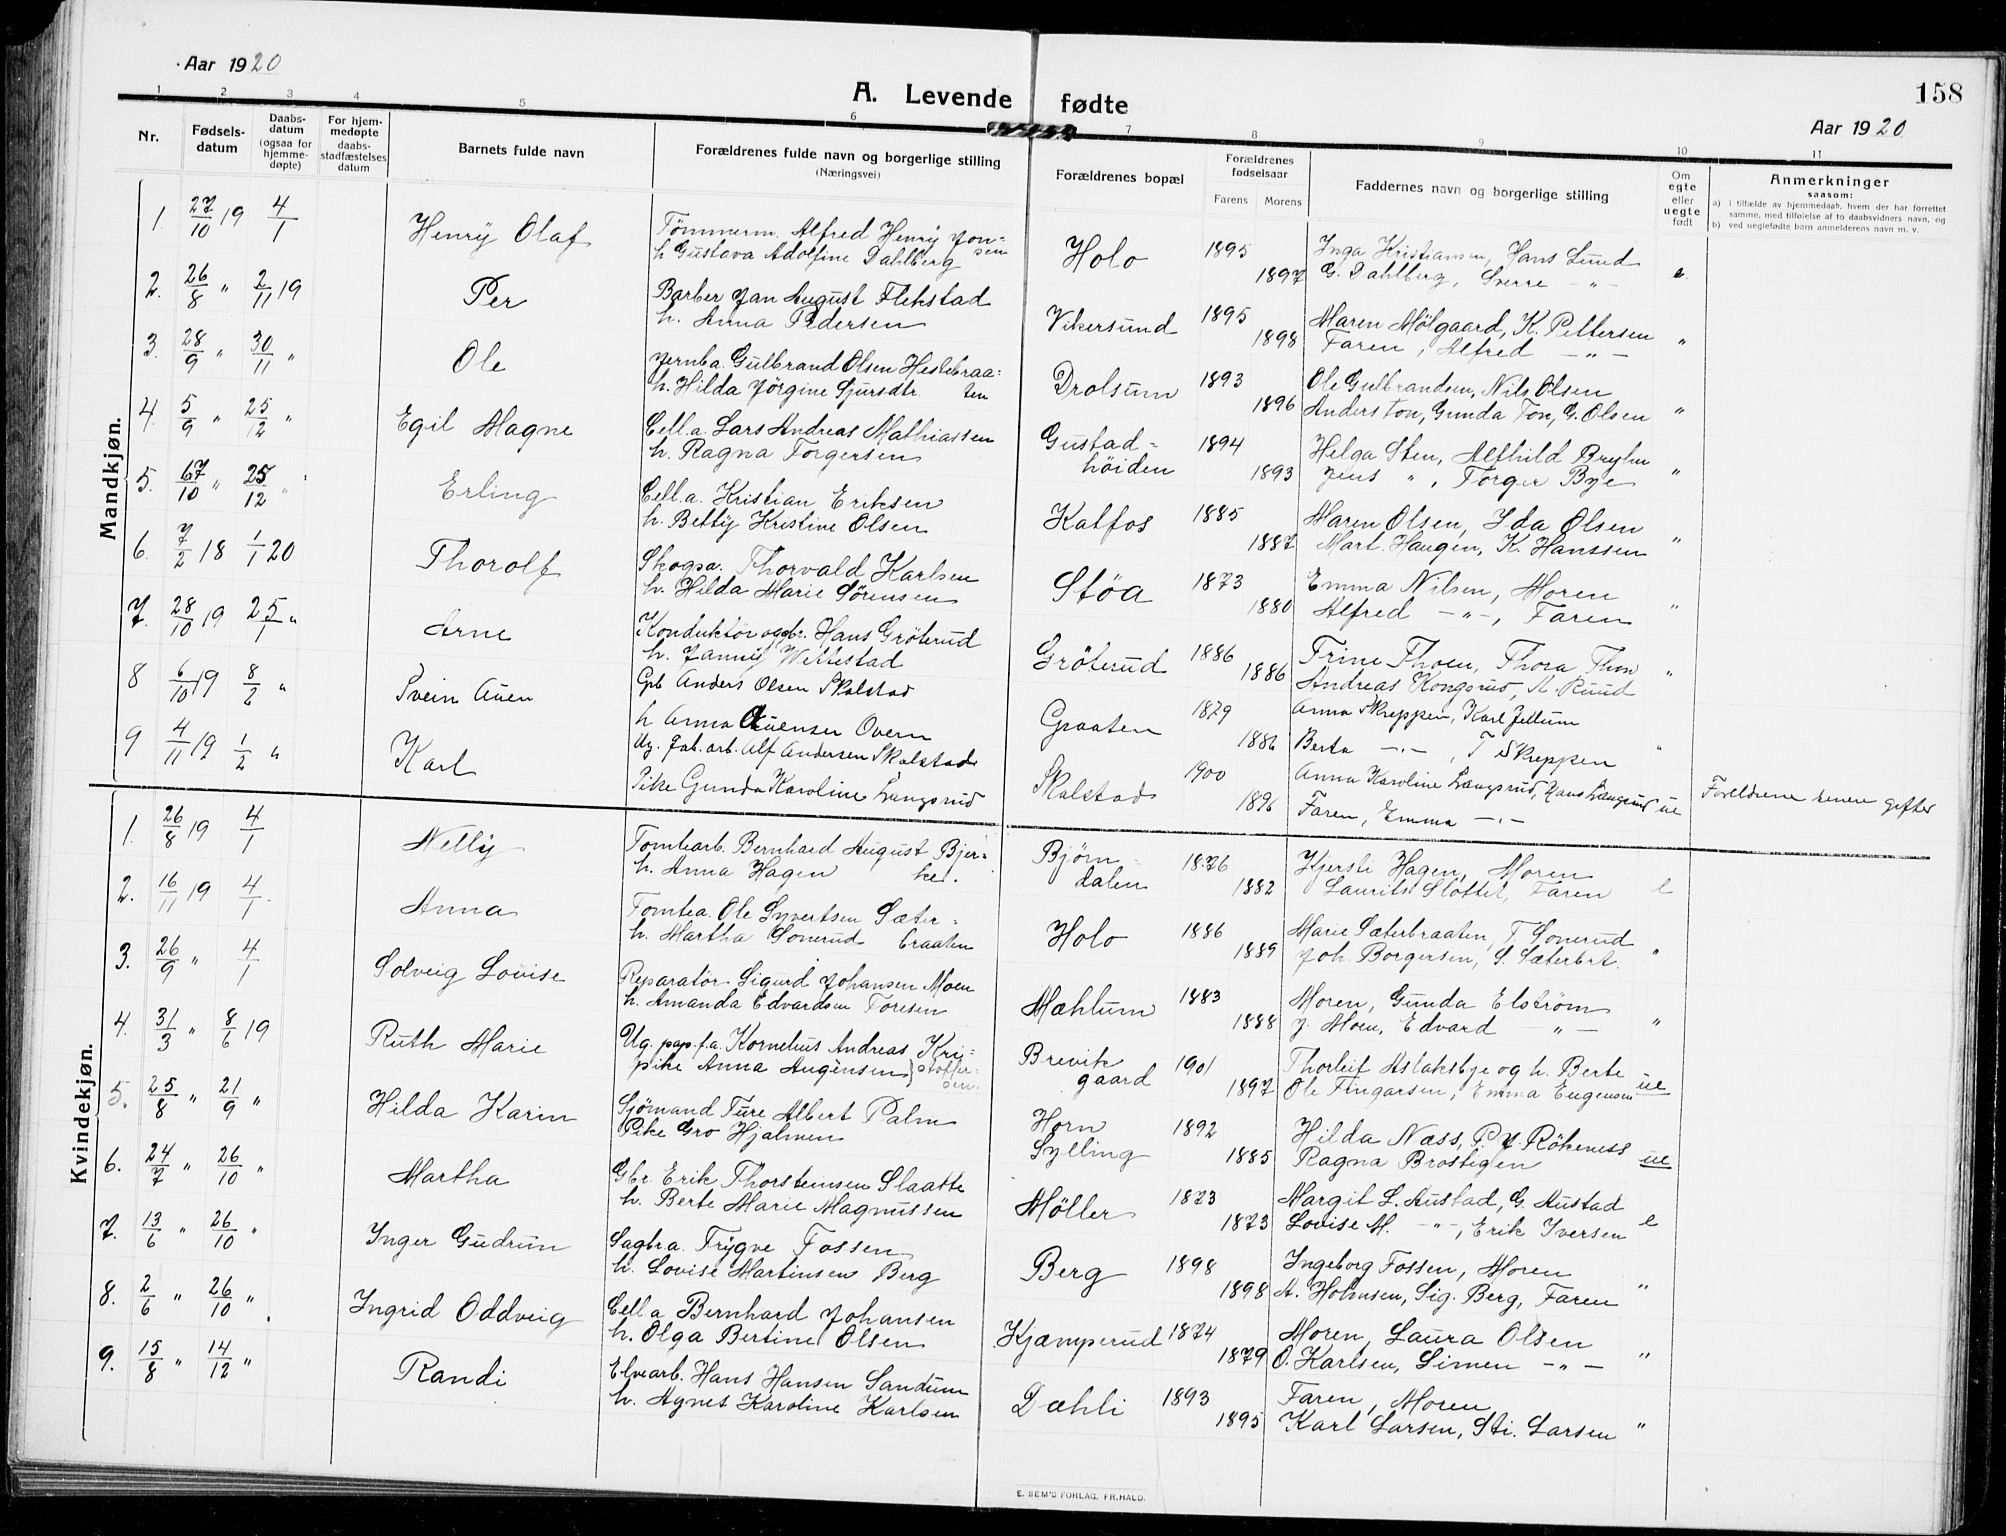 Aar 1920
A. Levende fødte
158
Aar 1920
1 2 3 4 5 6 7 8 9 10 11
Nr.
Fødselsdatum
Daabsdatum (ogsaa for hjemmedøpte)
For hjemmedøpte daabsstadfæstelses datum
Barnets fulde navn
Forældrenes fulde navn og borgerlige stilling (Næringsvei)
Forældrenes bopæl
Forældrenes fødselsaar
Farens Morens
Faddernes navn og borgerlige stilling
Om egte eller uegte født
Anmerkninger
saasom:
a) i tilfælde av hjemmedaab, hvem der har forrettet samme, med tilføielse af to daabsvidners navn, og
b) ved ueglefødte barn anmelderens navn m. v.
Mandkjøn.
1. 27/10 19 4/1 Henry Olaf Tømmerm. Alfred Henry Jonsen Holo 1895 Inga Kristiansen, Hans Lund
h. Gustava Adolfine Dahlberg 1897 G. Dahlberg, Sverre -"- e.
2. 26/8 " 2/11 19 Per Barber Jan August Flekstad Vikersund 1895 Maren Mølgaard, K. Pettersen
h. Anna Pedersen 1898 Faren, Alfred -"- "
3. 28/9 " 30/11 " Ole Jernba. Gulbrand Olsen Hestebraaten Drolsum 1893 Ole Gulbrandsen, Nils Olsen
h. Hilda Jørgine Sjursdtr. 1896 Anders Ton, Gunda Ton, G. Olsen "
4. 5/9 " 25/12 " Egil Magne Cell.a. Lars Andreas Mathiassen Gustad- 1894 Helga Sten, Alfhild Bryhn
h. Ragna Torgersen høiden 1893 Jens ", Torger Bye "
5. 67/10 " 25/12 " Erling Cell.a. Kristian Eriksen Katfos 1885 Maren Olsen, Ida Olsen
h. Betty Kristine Olsen 1887 Mart. Haugen, K. Hanssen "
6. 7/2 18 1/1 20 Thorolf Skogsa. Thorvald Karlsen Støa 1873 Emma Nilsen, Moren
h. Hilda Marie Sørensen 1880 Alfred -"-, Faren "
7. 28/10 19 25/1 " Arne Konduktør og gbr. Hans Grøterud Grøterud 1886 Trine Thoen, Thora Thon
h. Janny Wettestad 1886 Andreas Kongsrud, A. Ruud "
8 6/10 19 8/2 " Svein Auen Gb Anders Olsen Skalstad Graaten 1879 Anna Skreppen, Karl Jellum
h Anna Auensen Overn 1886 Berta -"-, T Skreppen "
9 4/11 19 1/2 " Karl Ug. fab. arb. Alf Andersen Skalstad Skalstad 1900 Anna Karoline Langsrud, Hans Langsrud ue Foreldrene senere gifter
Pike Gunda Karoline Langsrud 1896 Faren, Emma -"-
Kvindekjøn.
1. 26/8 19 4/1 Nelly Tomtearb. Bernhard August Bjerke. Bjørn- 1876 Kjersti Hagen, Moren
h. Anna Hagen dalen 1882 Laurits Slottet, Faren e
2. 16/11 19 4/1 Anna Tomtea. Ole Syvertsen Sæterbraaten Holo 1886 Marie Sæterbraaten, T. Sonerud
h. Martha Sonerud 1889 Joh. Borgersen, S. Sæterbrt. "
3. 26/9 " 4/1 Solveig Lovise Reparatør Sigurd Johansen Moen Mæhlum 1883 Moren, Gunda Elstrøm
h. Amanda Edvardsen Toresen 1888 J. Moen, Edvard -"- "
4. 31/3 " 8/6 19 Ruth Marie Ug. pap.f.a. Kornelius Andreas Kristoffersen. Brevik 1901 Thorleif Aslaksbye og h. Berte
pike Anna Augensen gaard 1897 Ole Fingarsen, Emma Eugensen ue
5. 25/8 " 21/9 " Hilda Karin Sjømand Ture Albert Palm Horn 1892 Hilda Næss, P. J. Rökeness
Pike Gro Hjalmen Sylling 1885 Ragna Brostigen ue
6. 24/7 " 26/10 " Martha Gbr. Erik Thorsteinsen Slaatte Møller 1873 Margit L. Austad, G. Austad
h. Berte Marie Magnussen 1873 Lovise M. -"-, Erik Iversen e
7. 13/6 " 26/10 " Inger Gudrun Sagbra. Trygve Fossen Berg 1898 Ingeborg Fossen, Moren
h. Lovise Martinsen Berg 1898 A. Holmsen, Sig. Berg, Faren "
8. 2/6 " 26/10 " Ingrid Oddveig Cell a Bernhard Johansen Kjæmperud 1874 Moren, Laura Olsen
h. Olga Bertine Olsen 1879 O. Karlsen, Simen -"- "
9. 15/8 " 14/12 " Randi Elvearb. Hans Hansen Sandum Dæhli 1893 Faren, Moren
h. Agnes Karoline Karlsen 1895 Karl Larsen, Sti. Larsen "
E. SEM'S FORLAG, FR.HALD.